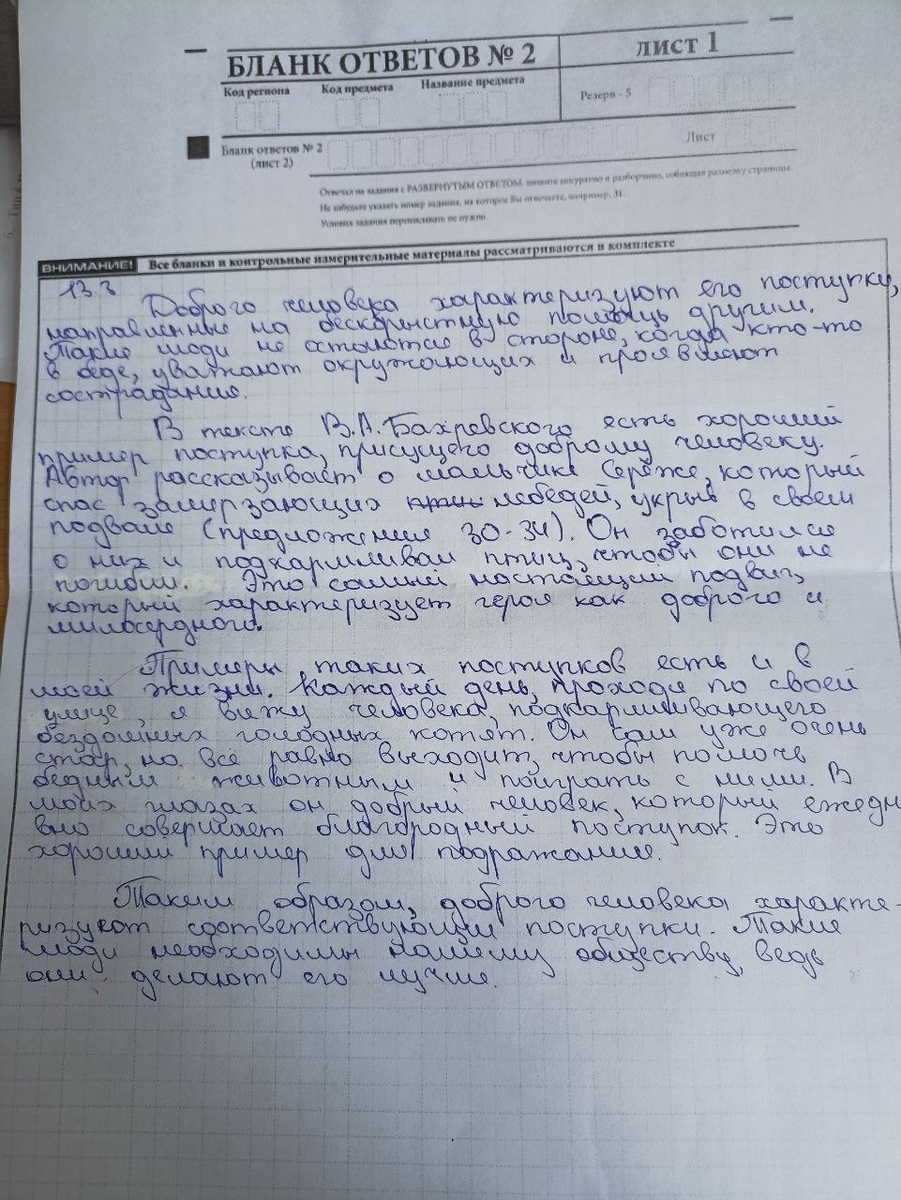 БЛАНК ОТВЕТОВ № 2
ЛИСТ 1
Код региона
Код предмета
Название предмета
Резерв - 5
Бланк ответов № 2
(лист 2)
Лист
Отвечая на задания с РАЗВЕРНУТЫМ ОТВЕТОМ, пишите аккуратно и разборчиво, соблюдая разметку страницы.
Не забудьте указать номер задания, на которое Вы отвечаете, например, 31.
Условия задания переписывать не нужно.
ВНИМАНИЕ! Все бланки и контрольные измерительные материалы рассматриваются в комплекте
13.3
Доброго человека характеризуют его поступки,
направленные на бескорыстную помощь другим.
Такие люди не остаются в стороне, когда кто-то
в беде, уважают окружающих и проявляют
сострадание.
В тексте В.А. Бахревского есть хороший
пример поступка, присущего доброму человеку.
Автор рассказывает о мальчике Серёже, который
спас замерзающих птиц лебедей, укрыв в своем
подвале (предложения 30-34). Он заботился
о них и подкармливал птиц, чтобы они не
погибли. Это самый настоящий подвиг,
который характеризует героя как доброго и
милосердного.
Примеры таких поступков есть и в
моей жизни. Каждый день, проходя по своей
улице, я вижу человека, подкармливающего
бездомных голодных котят. Он сам уже очень
стар, но всё равно выходит, чтобы помочь
бедным животным и поиграть с ними. В
моих глазах он добрый человек, который ежедн
вно совершает благородный поступок. Это
хороший пример для подражания.
Таким образом, доброго человека характе-
ризуют соответствующии поступки. Такие
люди необходимы нашему обществу, ведь
они делают его лучше.